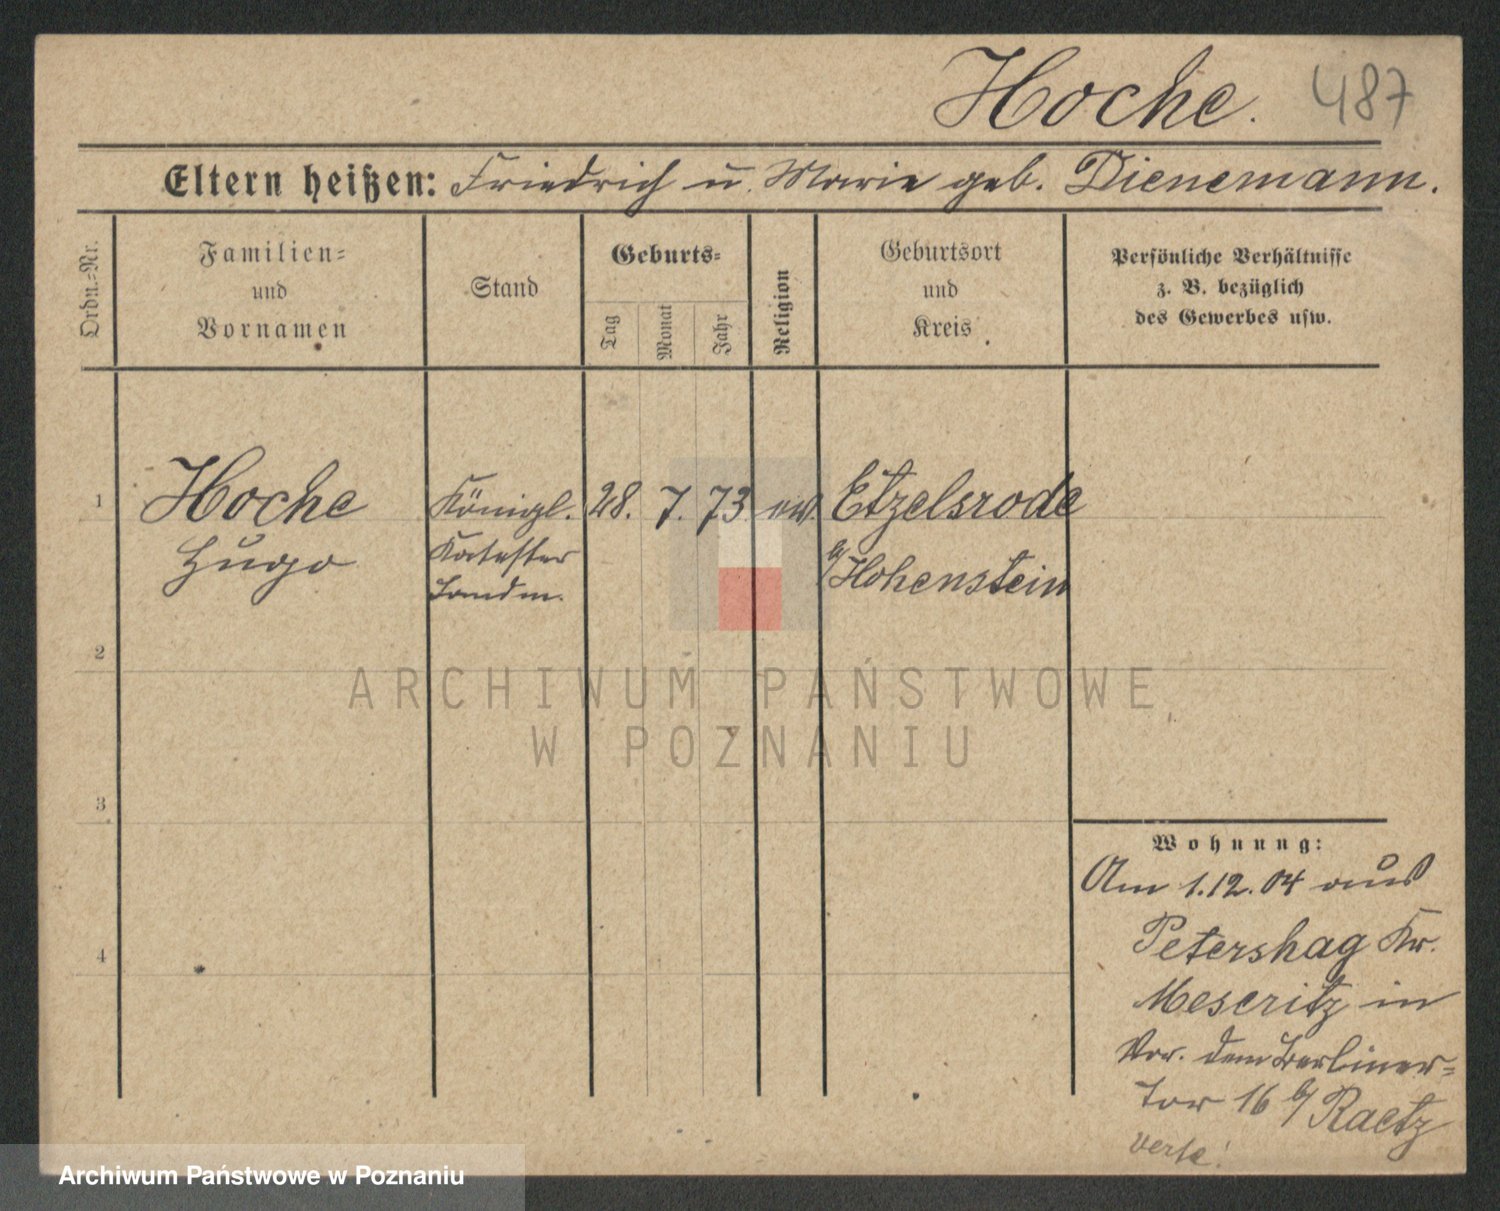 Hoche. 487
Eltern heißen: Friedrich u. Marie geb. Dienemann.
Ordn.-Nr.
Familien-
und
Vornamen
Stand
Geburts-
Tag
Monat
Jahr
Religion
Geburtsort
und
Kreis
Persönliche Verhältnisse
z. B. bezüglich
des Gewerbes usw.
1 Hoche Königl. 28. 7. 73 ev. Etzelsrode
Hugo Kataster b/Hohenstein
Landm.
2
3
4
Wohnung:
Am 1.12.04 aus
Petershag Kr.
Meseritz in
Vor. dem Berliner-
Tor 16 b/ Raetz
ARCHIWUM PAŃSTWOWE
W POZNANIU
Archiwum Państwowe w Poznaniu